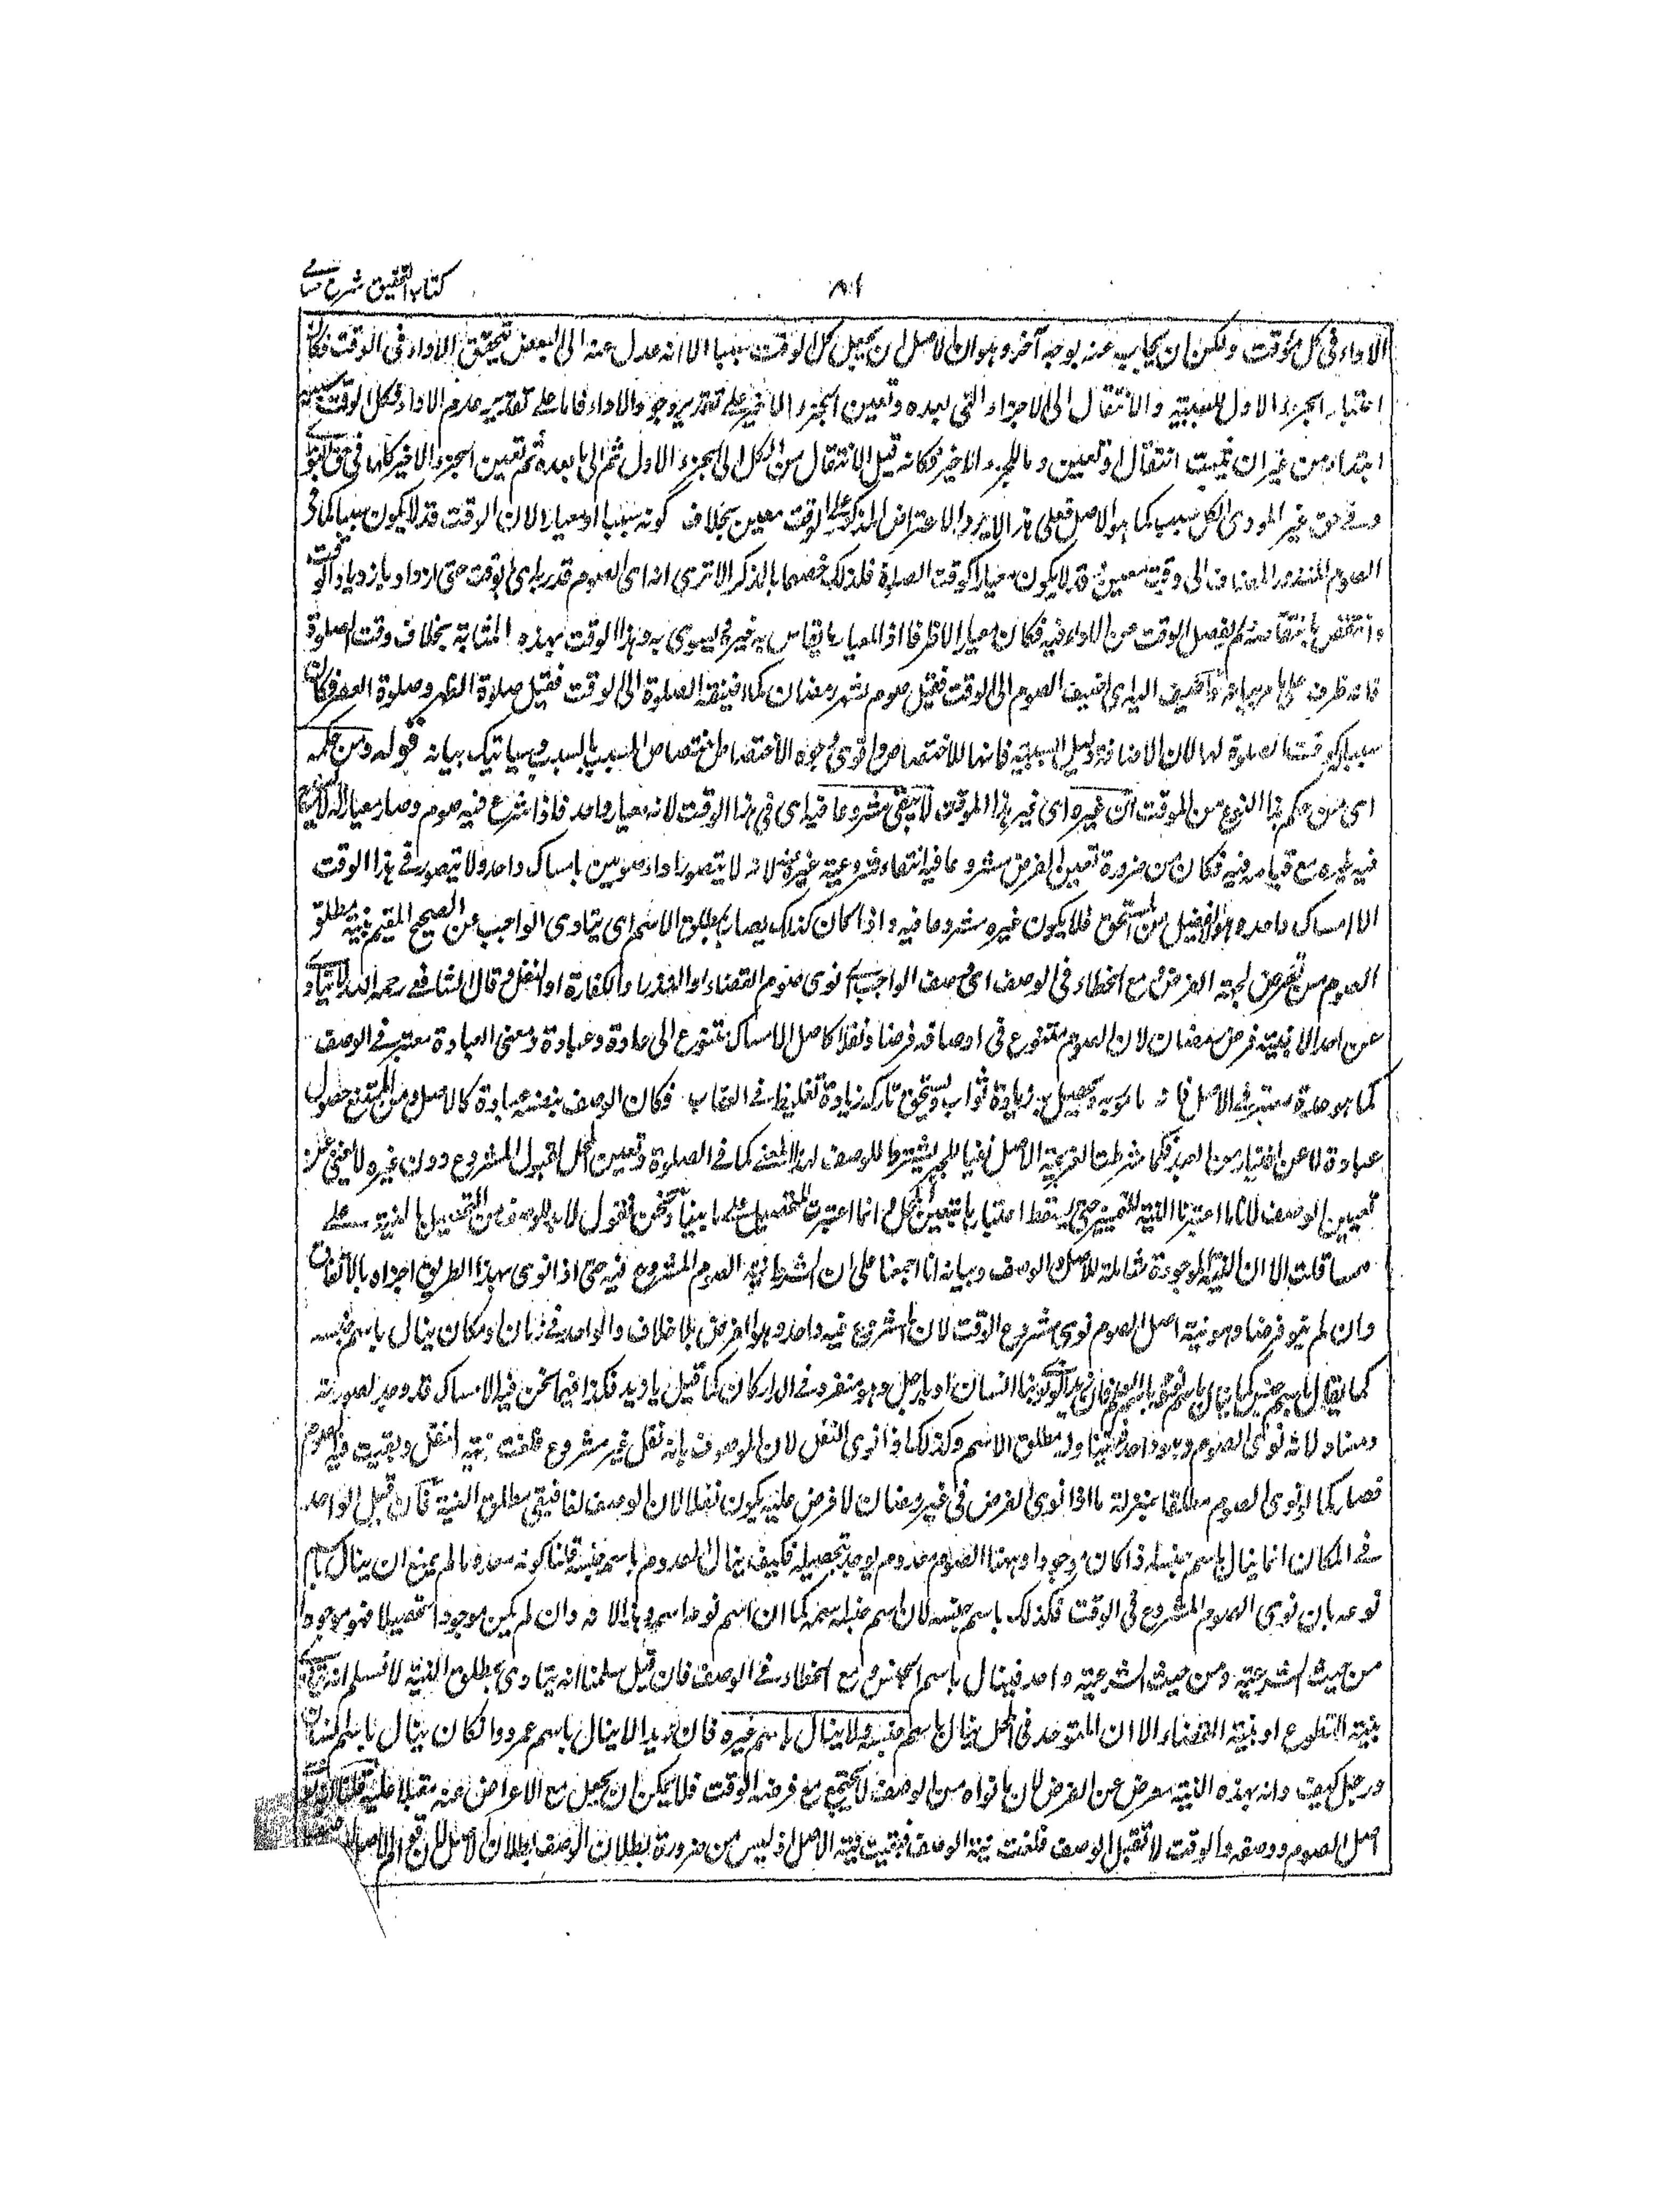 كتاب التحقيق شرح حسامي
الاداء فى كل موقت ولكن ان يجاب عنه بوجه آخر وهو ان الاصل ان يجعل كل الوقت سببا الا انه عدل عنه الى البعض لتحقق الاداء فى الوقت فكان
اعتبار الجزء الاول للسببية والانتقال الى الاجزاء التى بعده وتعين الجزء الاخير على تقدير وجود الاداء فاما على تقدير عدم الاداء فكل الوقت سببية
ابتداء من غير ان يثبت انتقال او تعيين للجزء الاخير فكانه قيل الانتقال من الكل الى الجزء الاول ثم الى ما بعده ثم تعين الجزء الاخير كلها فى حق
وفى حق غير المودى الكل سبب كما هو الاصل فعلى هذا لا يرد الاعتراض المذكور الوقت معين بخلاف كونه سببا او معيارا لان الوقت قد لا يكون سببا كما فى
الصوم المنذور المضاف الى وقت معين وقد لا يكون معيارا كوقت الصلوة فلذلك خصها بالذكر الا ترى انه اى الصوم قدر به اى بالوقت حتى ازداد بازدياد الوقت
وانتقص بانتقاصه لم يفضل الوقت عن الاداء فيه فكان معيارا لا ظرفا اذ المعيار ما يقاس به غيره ويسوى به وهذا الوقت بهذه المثابة بخلاف وقت الصلوة
فانه ظرف على ما مر بيانه واضيف اليه اى اضيف الصوم الى الوقت فقيل صوم شهر رمضان كما اضيفت الصلوة الى الوقت فقيل صلوة الظهر وصلوة العصر فكان
سببا كوقت الصلوة لها لان الاضافة دليل السببية فانها للاختصاص واقوى وجوه الاختصاص اختصاص المسبب بالسبب وسياتيك بيانه قوله ومن حكمه
اى من حكم هذا النوع من الموقت ان غيره اى غير هذا الموقت لا يبقى مشروعا فيه اى فى هذا الوقت لانه معيار واحد فاذا شرع فيه صوم وصار معيارا له لا يسع
فيه غيره مع قيامه فيه فكان من ضرورة تعين الفرض مشروعا فيه انتفاء مشروعية غيره لانه لا يتصور اداء صومين بامساك واحد ولا يتصور فى هذا الوقت
الا امساك واحد وهو لا يفضل عن المستحق فلا يكون غيره مشروعا فيه واذا كان كذلك يصاب بمطلق الاسم اى يتادى الواجب عن الصحيح المقيم بنية مطلق
الصوم من تعرض لجهة الفرض ومع الخطاء فى الوصف اى وصف الواجب بان نوى صوم القضاء او النذر او الكفارة او النفل وقال الشافعى رحمه الله لا يتادى
عن احد الا بنية فرض رمضان لان الصوم متنوع فى اوصافه فرضا ونفلا كاصل الامساك متنوع الى عادة وعبادة ومعنى العبادة معتبر فى الوصف
كما هو معتبر فى الاصل زيادة ثواب ويستحق تاركه زيادة تغليظ فى العقاب فكان الوصف بنفسه عبادة كالاصل ومن الممتنع حصول
عبادة لا عن اختيار من العبد فكما شرطت العزيمة الاصل نفيا للجبر يشترط للوصف لهذا المعنى كما فى الصلوة وتعيين المحل لقبول المشروع دون غيره لا يغنى عن
تعيين الوصف لانا ما اعتبرنا النية للتمييز حتى يسقط اعتباره بتعين المحل وانما اعتبرت للتحصيل على ما بينا ونحن نقول لا بد للوصف من التحصيل بالنية على
ما قلت الا ان النية الموجودة شاملة للاصل والوصف وبيانه انا اجمعنا على ان الشرط نية الصوم المشروع فيه حتى اذا نوى بهذا الطريق اجزاه بالاتفاق
وان لم ينو فرضا وهو نية اصل الصوم نوى مشروع الوقت لان المشروع فيه واحد وهو الفرض بلا خلاف والواحد فى زمان او مكان ينال باسم جنسه
كما ينال باسم نوعه يا انسان او يا رجل وهو منفرد فى الدار كان كما قيل يا زيد فكذا فيما نحن فيه الامساك قد وجد بصورته
ومعناه لانه نوى الصوم وهو واحد فيتناوله مطلق الاسم وكذلك اذا نوى النفل لان الموصوف بانه نفل غير مشروع فلغت نية النفل وبقيت نية الصوم
فصار كما لو نوى الصوم مطلقا بمنزلة ما اذا نوى الفرض فى غير رمضان لا فرض عليه يكون نفلا لان الوصف لغا فبقى مطلق النية فان قيل الواحد
فى المكان انما ينال باسم جنسه اذا كان موجودا وههنا الصوم معدوم يوجد بتحصيله فكيف ينال المعدوم باسم جنسه قلنا كونه معدوما لم يمنع ان ينال باسم
نوعه بان نوى الصوم المشروع فى الوقت فكذلك باسم جنسه لان اسم جنسه اسمه كما ان اسم نوعه اسمه وهذا لانه وان لم يكن موجودا تحصيلا فهو موجود
من حيث الشرعية ومن حيث الشرعية واحد فينال باسم الجنس ومع الخطاء فى الوصف فان قيل سلمنا انه يتادى بمطلق النية لا نسلم انه يتادى
بنية التطوع او بنية القضاء الا ان المتوحد فى المحل ينال باسم جنسه ولا ينال باسم غيره فان زيدا لا ينال باسم عمرو وان كان ينال باسم انسان
ورجل كيف وانه بهذه النية معرض عن الفرض لان ما نواه من الوصف لا يجتمع مع فرض الوقت فلا يمكن ان يجعل مع الاعراض عنه مقبلا عليه قلنا
اصل الصوم ووصفه والوقت لا تقبل الوصف فلغت نية الوصف فبقيت نية الاصل اذ ليس من ضرورة بطلان الوصف بطلان الاصل